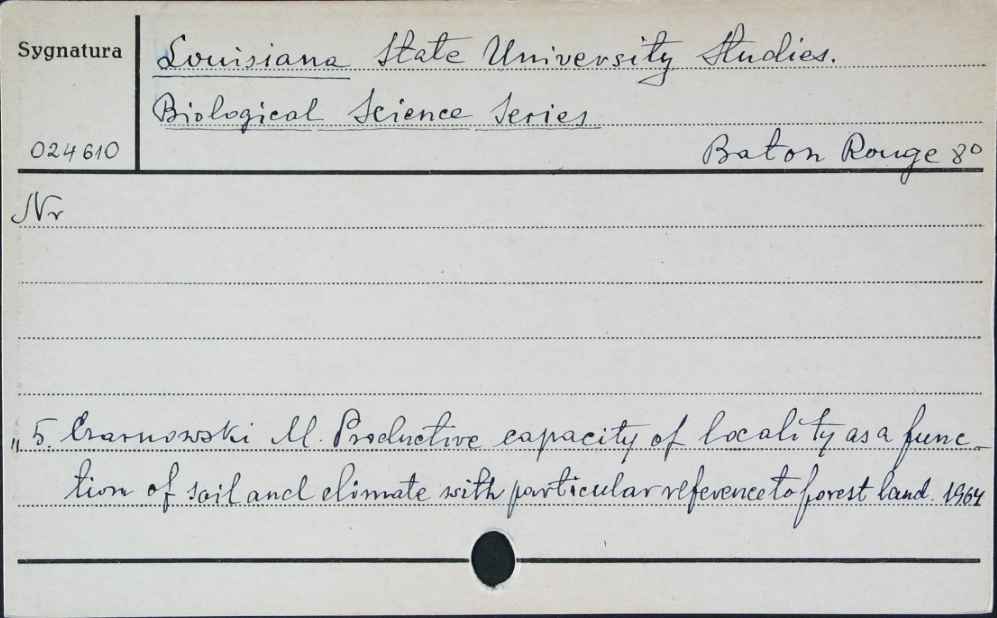 Sygnatura
Louisiana State University Studies.
Biological Science Series
024610
Baton Rouge 8°
Nr
„ 5. Czarnowski M. Productive capacity of locality as a func-
tion of soil and climate with particular reference to forest land. 1964